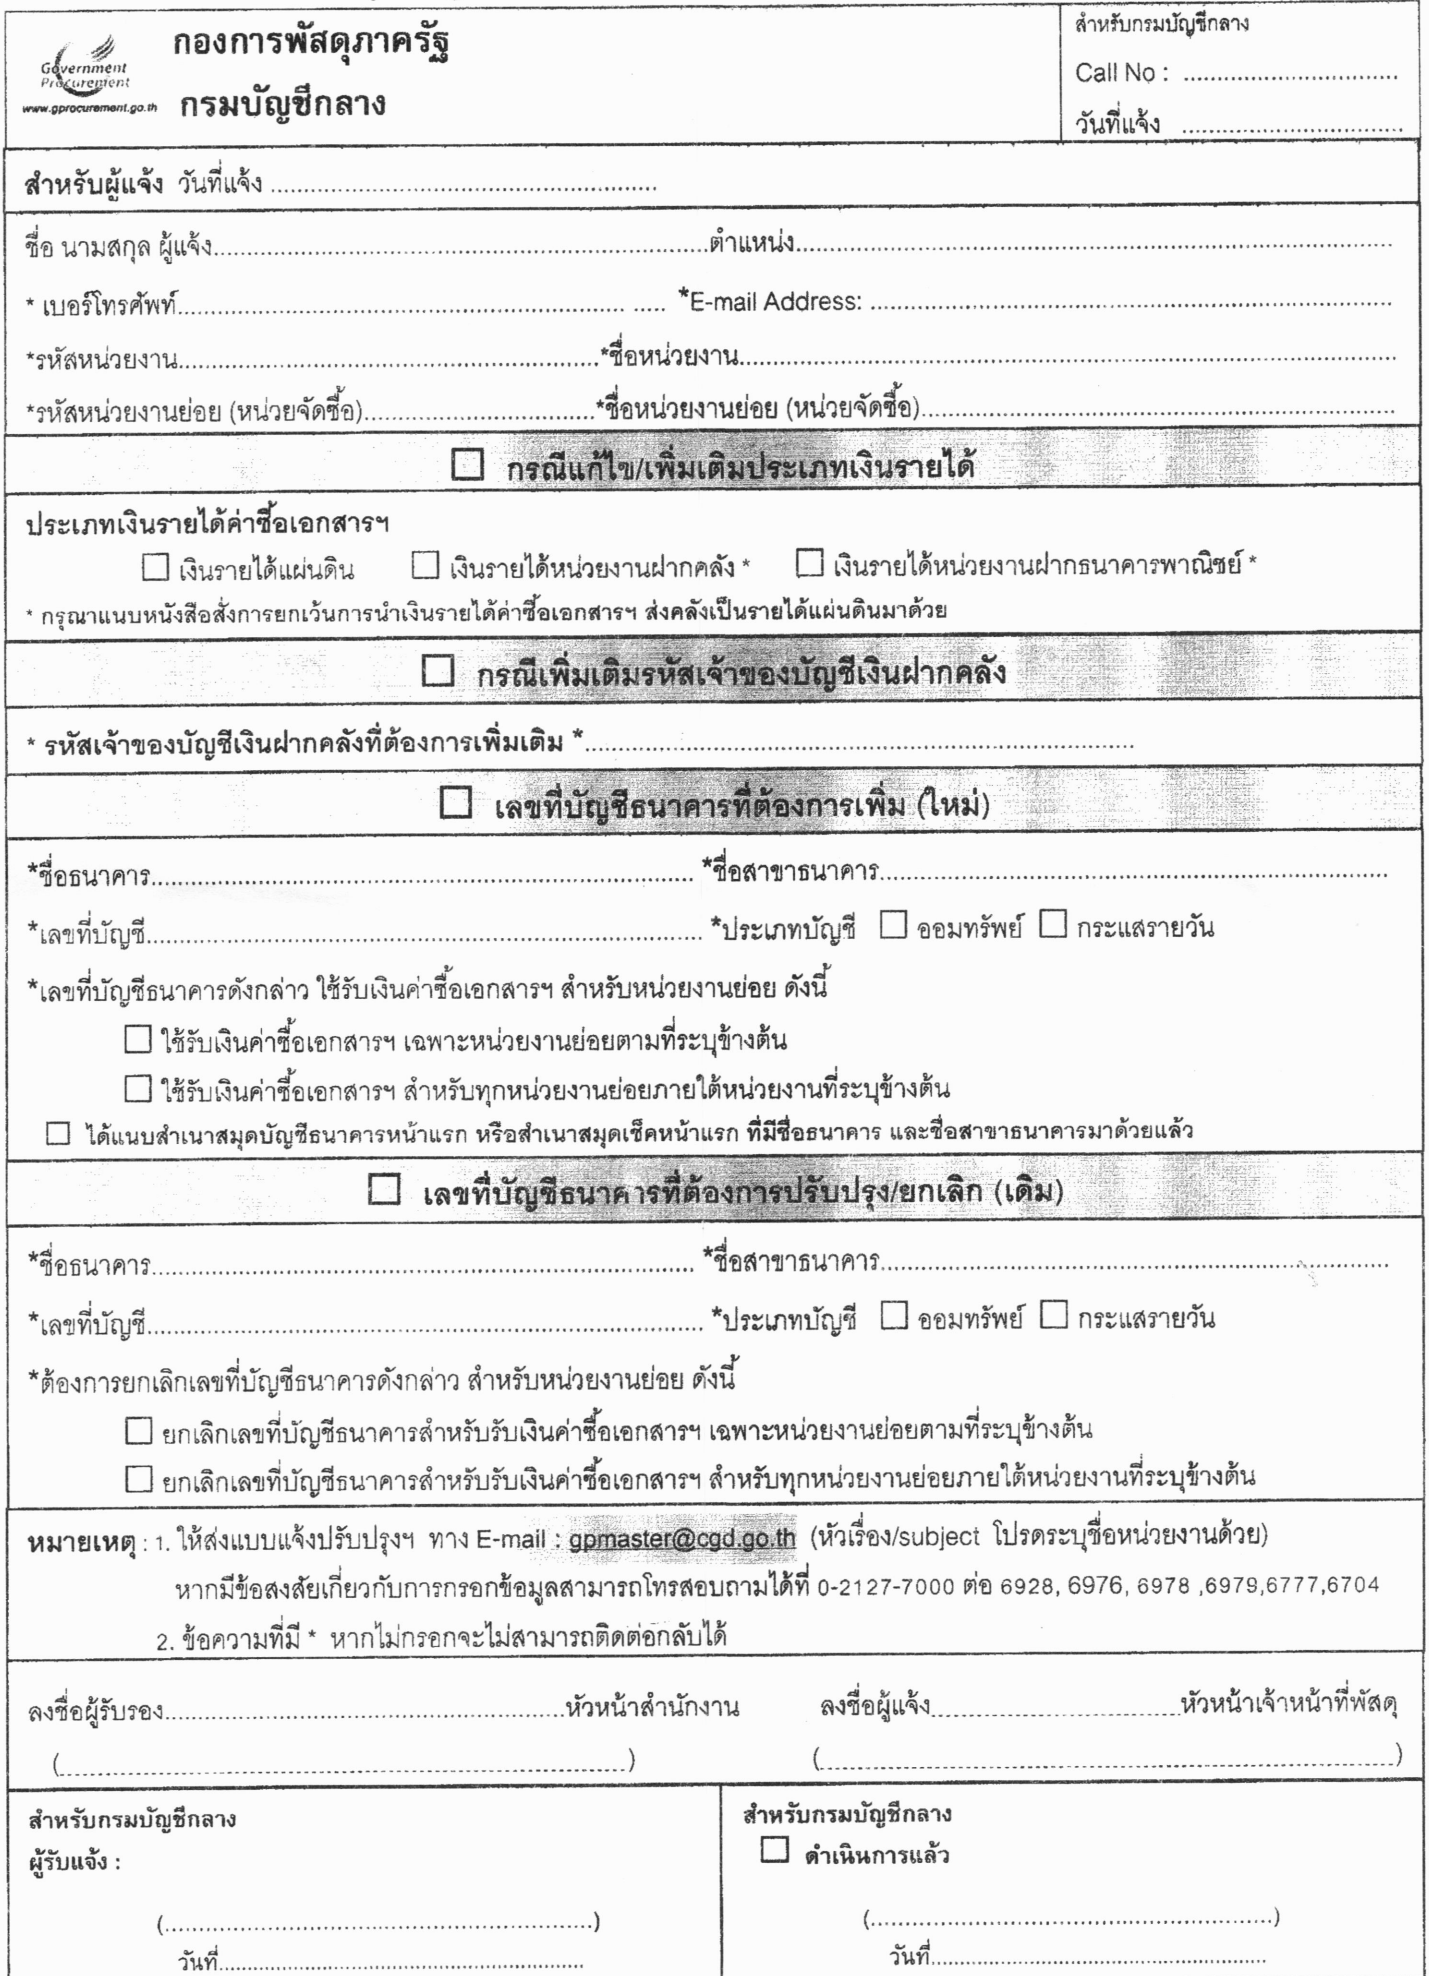 Government
Procurement
www.gprocurement.go.th
กองการพัสดุภาครัฐ
กรมบัญชีกลาง
สำหรับกรมบัญชีกลาง
Call No : ................................
วันที่แจ้ง ................................
สำหรับผู้แจ้ง วันที่แจ้ง ........................................................
ชื่อ นามสกุล ผู้แจ้ง........................................................ตำแหน่ง........................................................
* เบอร์โทรศัพท์........................................................ ..... *E-mail Address: ........................................................
*รหัสหน่วยงาน........................................................*ชื่อหน่วยงาน........................................................
*รหัสหน่วยงานย่อย (หน่วยจัดซื้อ)................................*ชื่อหน่วยงานย่อย (หน่วยจัดซื้อ)........................................................
☐ กรณีแก้ไข/เพิ่มเติมประเภทเงินรายได้
ประเภทเงินรายได้ค่าซื้อเอกสารฯ
☐ เงินรายได้แผ่นดิน ☐ เงินรายได้หน่วยงานฝากคลัง * ☐ เงินรายได้หน่วยงานฝากธนาคารพาณิชย์ *
* กรุณาแนบหนังสือสั่งการยกเว้นการนำเงินรายได้ค่าซื้อเอกสารฯ ส่งคลังเป็นรายได้แผ่นดินมาด้วย
☐ กรณีเพิ่มเติมรหัสเจ้าของบัญชีเงินฝากคลัง
* รหัสเจ้าของบัญชีเงินฝากคลังที่ต้องการเพิ่มเติม *........................................................
☐ เลขที่บัญชีธนาคารที่ต้องการเพิ่ม (ใหม่)
*ชื่อธนาคาร........................................................ *ชื่อสาขาธนาคาร........................................................
*เลขที่บัญชี........................................................ *ประเภทบัญชี ☐ ออมทรัพย์ ☐ กระแสรายวัน
*เลขที่บัญชีธนาคารดังกล่าว ใช้รับเงินค่าซื้อเอกสารฯ สำหรับหน่วยงานย่อย ดังนี้
☐ ใช้รับเงินค่าซื้อเอกสารฯ เฉพาะหน่วยงานย่อยตามที่ระบุข้างต้น
☐ ใช้รับเงินค่าซื้อเอกสารฯ สำหรับทุกหน่วยงานย่อยภายใต้หน่วยงานที่ระบุข้างต้น
☐ ได้แนบสำเนาสมุดบัญชีธนาคารหน้าแรก หรือสำเนาสมุดเช็คหน้าแรก ที่มีชื่อธนาคาร และชื่อสาขาธนาคารมาด้วยแล้ว
☐ เลขที่บัญชีธนาคารที่ต้องการปรับปรุง/ยกเลิก (เดิม)
*ชื่อธนาคาร........................................................ *ชื่อสาขาธนาคาร........................................................
*เลขที่บัญชี........................................................ *ประเภทบัญชี ☐ ออมทรัพย์ ☐ กระแสรายวัน
*ต้องการยกเลิกเลขที่บัญชีธนาคารดังกล่าว สำหรับหน่วยงานย่อย ดังนี้
☐ ยกเลิกเลขที่บัญชีธนาคารสำหรับรับเงินค่าซื้อเอกสารฯ เฉพาะหน่วยงานย่อยตามที่ระบุข้างต้น
☐ ยกเลิกเลขที่บัญชีธนาคารสำหรับรับเงินค่าซื้อเอกสารฯ สำหรับทุกหน่วยงานย่อยภายใต้หน่วยงานที่ระบุข้างต้น
หมายเหตุ : 1. ให้ส่งแบบแจ้งปรับปรุงฯ ทาง E-mail : gpmaster@cgd.go.th (หัวเรื่อง/subject โปรดระบุชื่อหน่วยงานด้วย)
หากมีข้อสงสัยเกี่ยวกับการกรอกข้อมูลสามารถโทรสอบถามได้ที่ 0-2127-7000 ต่อ 6928, 6976, 6978 ,6979,6777,6704
2. ข้อความที่มี * หากไม่กรอกจะไม่สามารถติดต่อกลับได้
ลงชื่อผู้รับรอง........................................................หัวหน้าสำนักงาน ลงชื่อผู้แจ้ง................................หัวหน้าเจ้าหน้าที่พัสดุ
(........................................................) (........................................................)
สำหรับกรมบัญชีกลาง
ผู้รับแจ้ง :
(........................................................)
วันที่........................................................
สำหรับกรมบัญชีกลาง
☐ ดำเนินการแล้ว
(........................................................)
วันที่........................................................